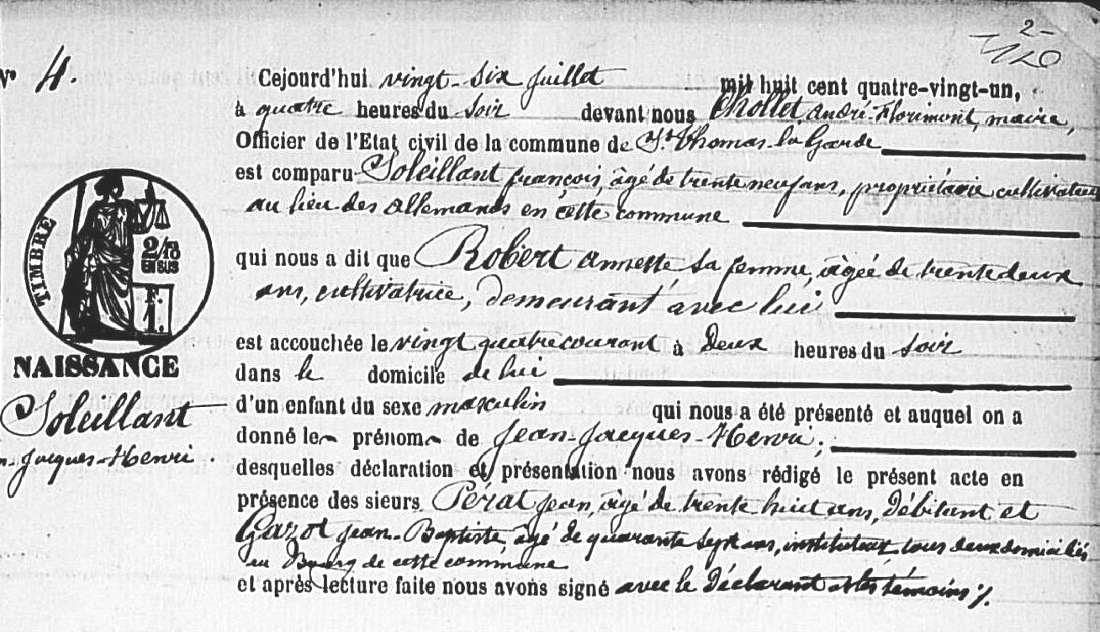 2-
120
N° 4.
Cejourd'hui vingt-six juillet mil huit cent quatre-vingt-un,
à quatre heures du soir devant nous Chollet, andré-Florimont, maire,
Officier de l'Etat civil de la commune de St Thomas-la Garde
est comparu Soleillant françois, âgé de trente neuf ans, propriétaire cultivateur
au lieu des allemands en cette commune
qui nous a dit que Robert annette sa femme, âgée de trente deux
ans, cultivatrice, demeurant avec lui
est accouchée le vingt quatre courant à deux heures du soir
dans le domicile de lui
d'un enfant du sexe masculin qui nous a été présenté et auquel on a
donné le prénom de Jean-Jacques-Henri;
desquelles déclaration et présentation nous avons rédigé le présent acte en
présence des sieurs Pérat Jean, âgé de trente huit ans, débitant et
Gazot Jean-Baptiste âgé de quarante sept ans, instituteur tous deux domiciliés
au Bourg de cette commune
et après lecture faite nous avons signé avec le Déclarant et les témoins ./.
TIMBRE
2/10
EN SUS
1 F.
NAISSANCE
Soleillant
n-Jacques-Henri.